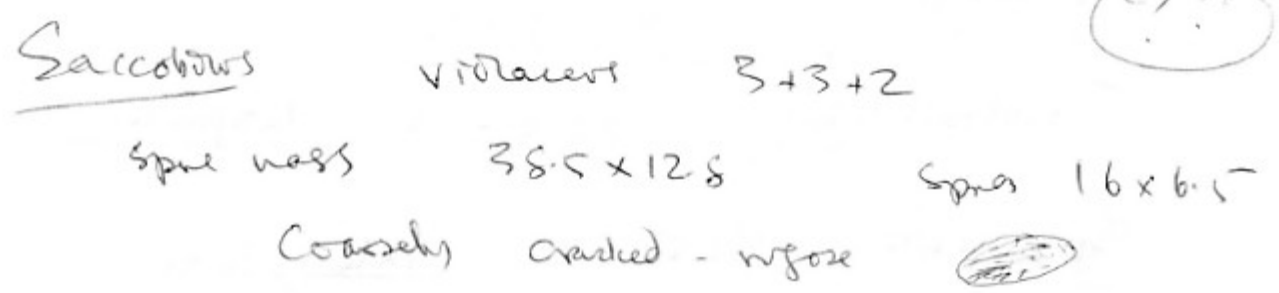 Saccobolus violaceus 3+3+2
Spore mass 38.5 x 12.8 Spores 16 x 6.5
Coarsely cracked - rugose